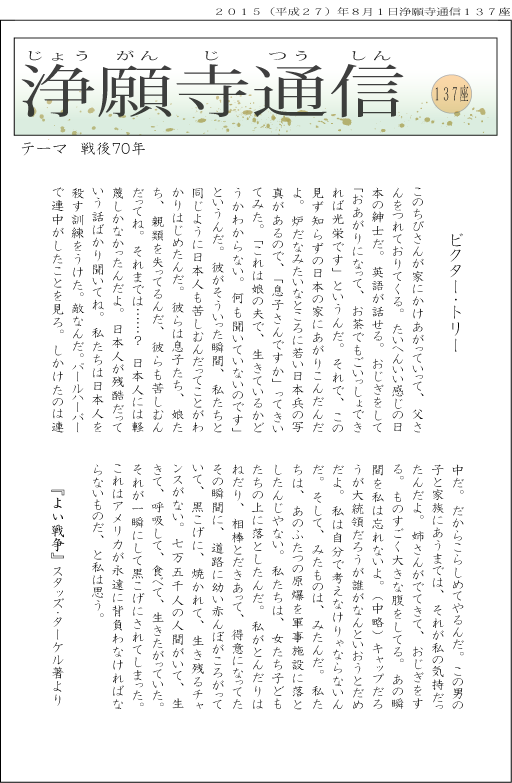 2015（平成27）年8月1日浄願寺通信137座
じょう がん じ つう しん
浄願寺通信
137座
テーマ　戦後70年
ビクター・トリー
このちびさんが家にかけあがっていって、父さ
んをつれておりてくる。たいへんいい感じの日
本の紳士だ。英語が話せる。おじぎをして
「おあがりになって、お茶でもごいっしょでき
れば光栄です」というんだ。それで、この
見ず知らずの日本の家にあがりこんだんだ
よ。炉だなみたいなところに若い日本兵の写
真があるので、「息子さんですか」ってきい
てみた。「これは娘の夫で、生きているかど
うかわからない。何も聞いていないのです」
というんだ。彼がそういった瞬間、私たちと
同じように日本人も苦しむんだってことがわ
かりはじめたんだ。彼らは息子たち、娘た
ち、親類を失ってるんだ、彼らも苦しむん
だってね。それまでは……？　日本人には軽
蔑しかなかったんだよ。日本人が残酷だって
いう話ばかり聞いてね。私たちは日本人を
殺す訓練をうけた。敵なんだ。パールハーバー
で連中がしたことを見ろ。しかけたのは連
中だ。だからこらしめてやるんだ。この男の
子と家族にあうまでは、それが私の気持だっ
たんだよ。姉さんがでてきて、おじぎをす
る。ものすごく大きな腹をしてる。あの瞬
間を私は忘れないよ。（中略）キャップだろ
うが大統領だろうが誰がなんといおうとだめ
だよ。私は自分で考えなけりゃならないん
だ。そして、みたものは、みたんだ。私た
ちは、あのふたつの原爆を軍事施設に落と
したんじゃない。私たちは、女たち子ども
たちの上に落としたんだ。私がとんだりは
ねだり、相棒とだきあって、得意になってた
その瞬間に、道路に幼い赤んぼがころがって
いて、黒こげに、焼かれて、生き残るチャ
ンスがない。七万五千人の人間がいて、生
きて、呼吸して、食べて、生きたがっていた。
それが一瞬にして黒こげにされてしまった。
これはアメリカが永遠に背負わなければな
らないものだ、と私は思う。
『よい戦争』スタッズ・ターケル著より